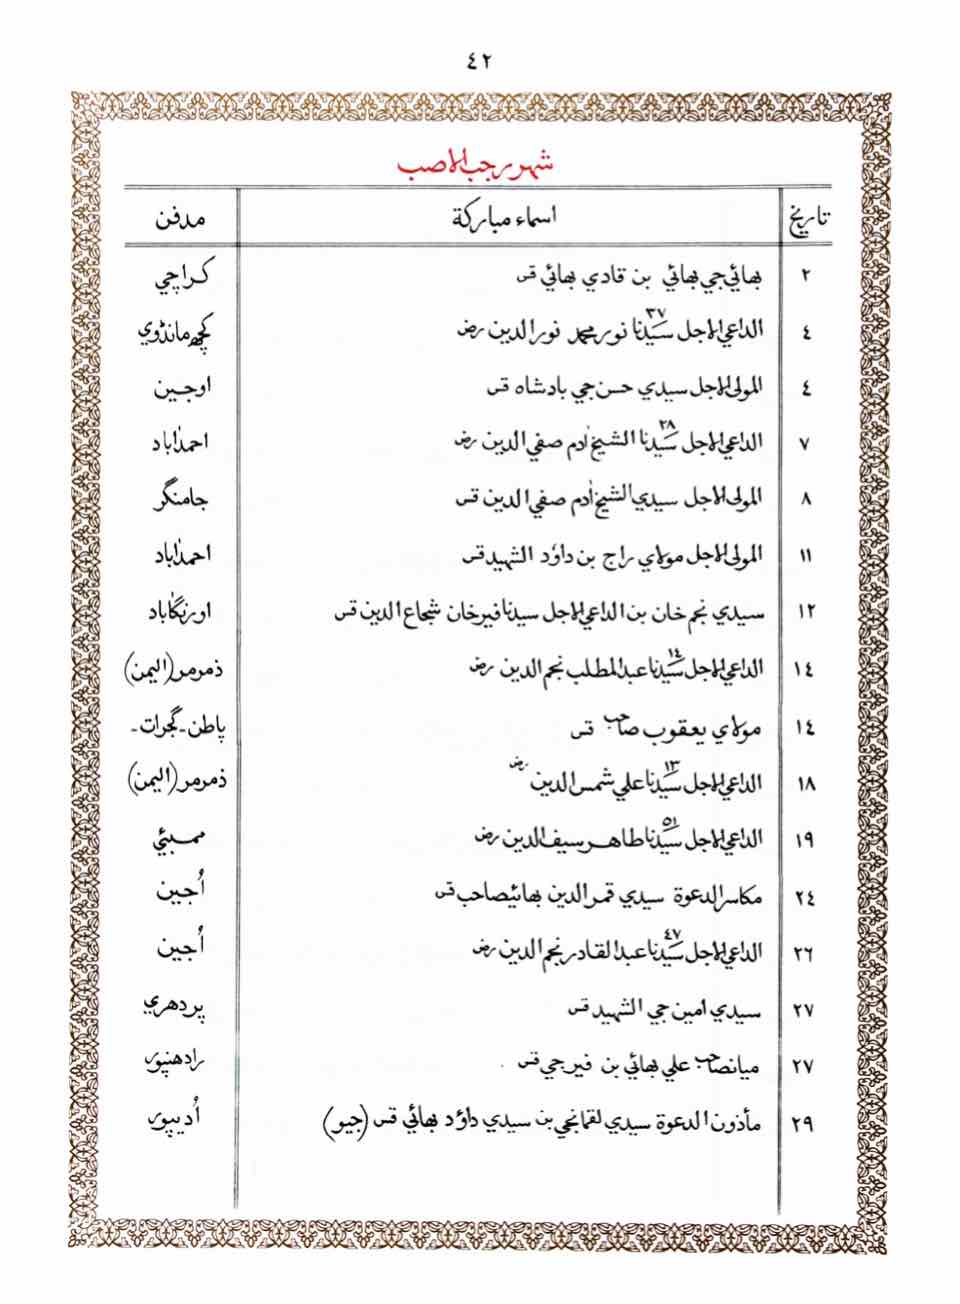 ٤٢
شهر رجب الاصب
تاريخ اسماء مباركة مدفن
٢ بهائي جي بهائي بن قادي بهائي قس كراچي
٤ الداعي الاجل سيدنا ٣٧ نور محمد نور الدين رض كچھ مانڈوي
٤ المولى الاجل سيدي حسن جي بادشاه قس اوجين
٧ الداعي الاجل سيدنا ٢٨ الشيخ اٰدم صفي الدين رض احمداٰباد
٨ المولى الاجل سيدي الشيخ اٰدم صفي الدين قس جامنگر
١١ المولى الاجل مولاي راج بن داود الشهيد قس احمداٰباد
١٢ سيدي نجم خان بن الداعي الاجل سيدنا فيرخان شجاع الدين قس اورنگاباد
١٤ الداعي الاجل سيدنا ١٤ عبد المطلب نجم الدين رض ذمرمر (اليمن)
١٤ مولاي يعقوب صاحب قس پاطن - گجرات -
١٨ الداعي الاجل سيدنا ١٣ علي شمس الدين رض ذمرمر (اليمن)
١٩ الداعي الاجل سيدنا ٥١ طاهر سيف الدين رض ممبئي
٢٤ مكاسر الدعوة سيدي قمر الدين بهائيصاحب قس اُجين
٢٦ الداعي الاجل سيدنا ٤٧ عبد القادر نجم الدين رض اُجين
٢٧ سيدي امين جي الشهيد قس پردهري
٢٧ ميانصاحب علي بهائي بن فيرجي قس رادهنپور
٢٩ مأذون الدعوة سيدي لقمانجي بن سيدي داؤد بهائي قس (جيو) اُديپور